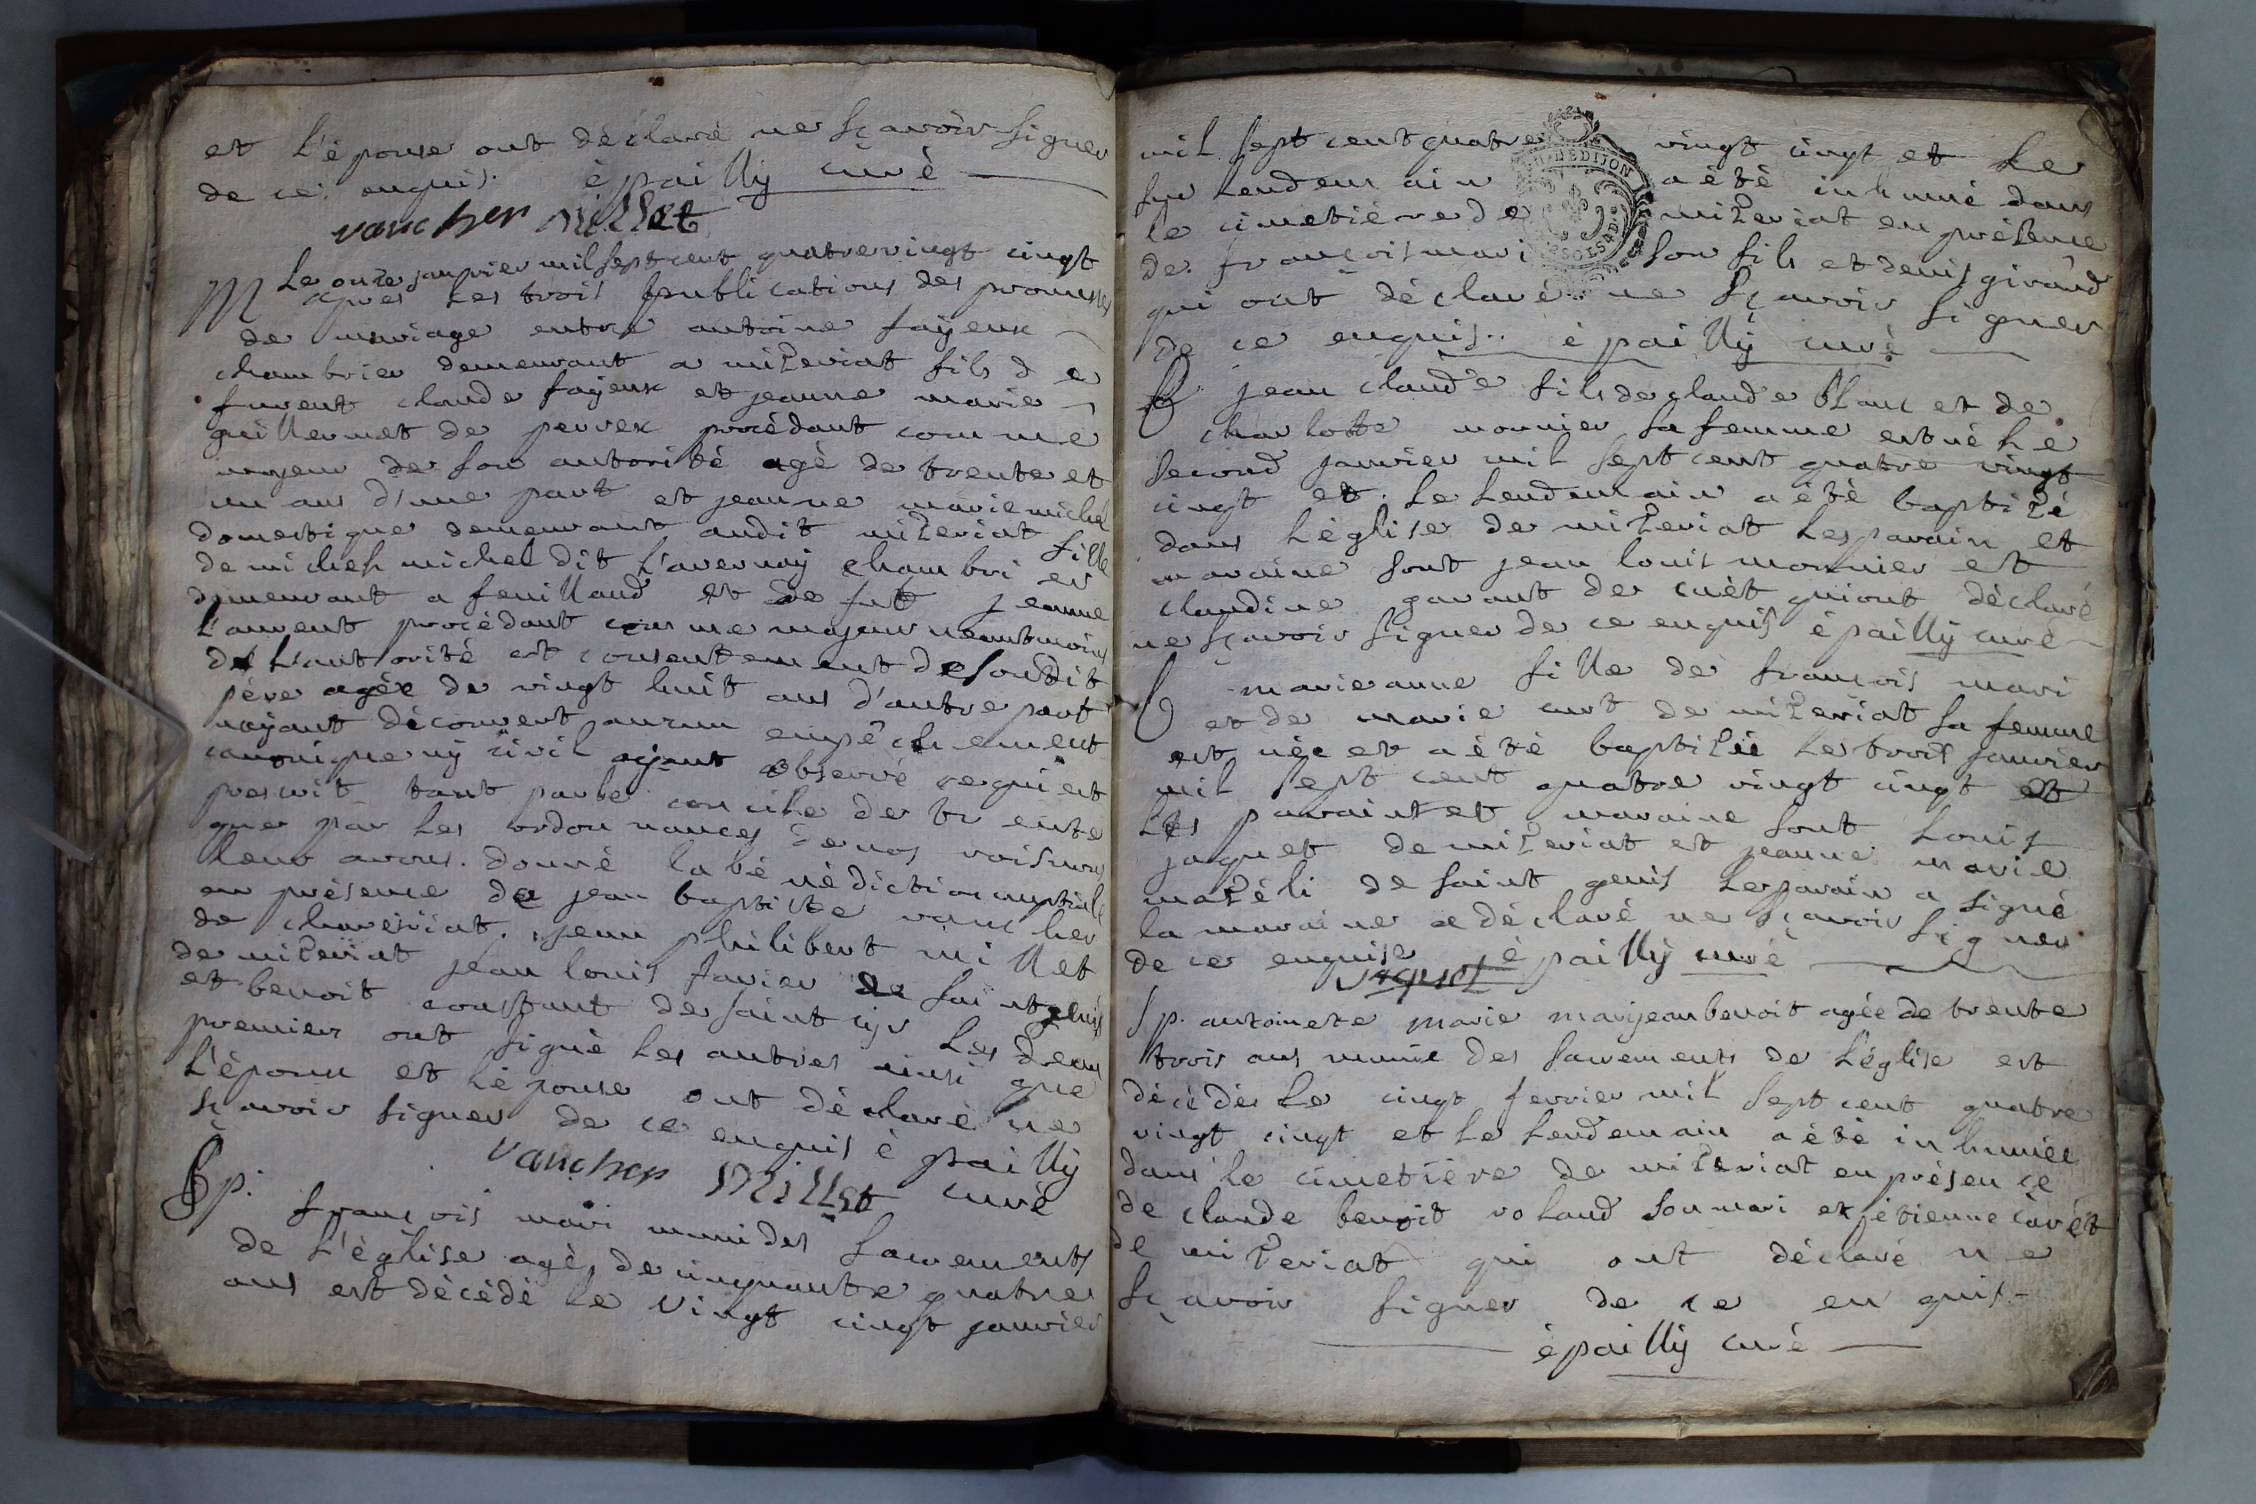 et l'épouse ont déclaré ne sçavoir signer
de ce enquis. épailly curé
vaucher Millet
M Le onze janvier mil sept cent quatre vingt cinqt
apres les trois publications des promesses
de mariage entre antoine fayeux
chambrier demeurant a miZeriat fils de
furent claude fayeux et jeanne marie
guillermet de perrex procédant comme
majeur de son autorité agé de trente et
un ans d'une part et jeanne marie michel
domestique demeurant audit miZeriat fille
de michel michel dit l'avernay chambrier
demeurant a feuilland et de fut jeanne
laurent procédant comme majeur neantmoins
de l'autorité et consentement de soudit
père agée de vingt huit ans d'autre part
nayant découvert aucun empêchement
canonique ny civil ayant observé ce qui est
prescrit tant par le concile de trente
que par les ordonnances de nos rois nous
leur avons donné la bénédiction nuptiale
en présence de jean baptiste vaucher
de chaveiriat, jean philibert millet
de miZeriat jean louis favier de saint genis
et benoit constant de saint cyr les deux
premiers ont signé les autres ainsi que
l'époux et lépouse ont déclaré ne
sçavoir signer de ce enquis épailly
vaucher Millet curé
Sp. françois mari muni des sacrements
de l'église agé de cinquante quatre
ans est décédé le vingt cinqt janvier
mil sept cent quatre vingt cinqt et le
sur lendemain a été inhumé dans
le cimetière de miZeriat en présence
de françois mari son fils et denis giraud
qui ont déclaré ne sçavoir signer
de ce enquis.. épailly curé
B jean claude fils de claude blanc et de
charlotte monnier sa femme est né le
second janvier mil sept cent quatre vingt
cinqt et le lendemain a été baptiZé
dans l'église de miZeriat les parain et
maraine sont jean louis monnier et
claudine garant de cuêt qui ont déclaré
ne sçavoir signer de ce enquis épailly curé
B marie anne fille de françois mari
et de marie curt de miZeriat sa femme
est née et a été baptiZée le trois janvier
mil sept cent quatre vingt cinqt et
les parain et maraine sont louis
jaquet de miZeriat et jeanne marie
maZéli de saint genis le parain a signé
la maraine a déclaré ne sçavoir signer
de ce enquise épailly curé
jaquet
Sp. antoinete marie marijean benoit agée de trente
trois ans munie des sacrements de l'église est
décédée le cinqt fevrier mil sept cent quatre
vingt cinqt et le lendemain a été inhumée
dans le cimetière de miZeriat en présence
de claude benoit roland son mari et étienne cavét
de miZeriat qui ont déclaré ne
sçavoir signer de ce enquis
épailly curé